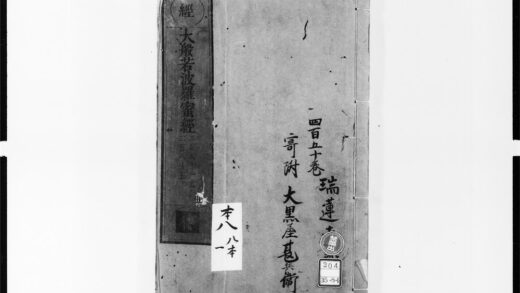 經
大般若波羅蜜經
四百五十巻
寄附
瑞蓮
大黒屋甚兵衛
本八
八本
一
204